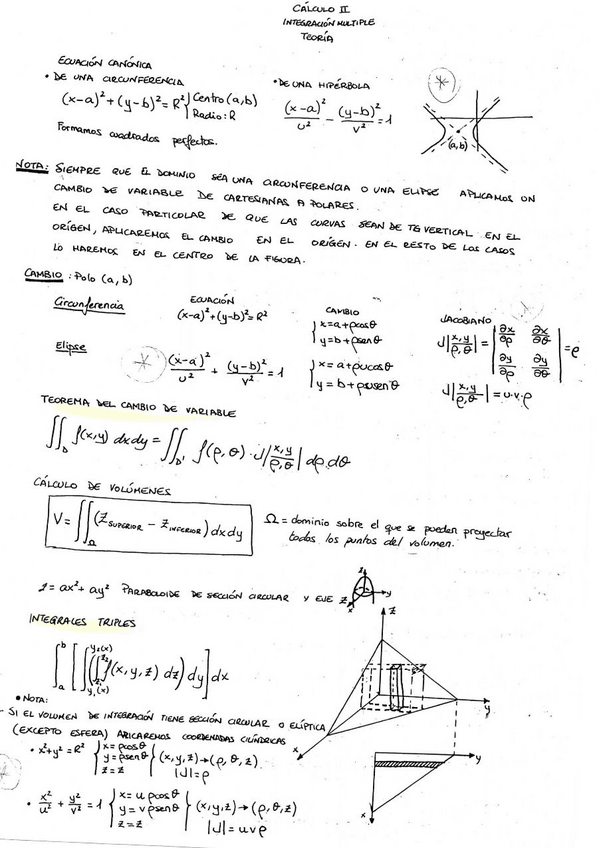 CÁLCULO II
INTEGRACIÓN MULTIPLE
TEORÍA
ECUACIÓN CANÓNICA
• DE UNA CIRCUNFERENCIA
(x-a)² + (y-b)² = R² } Centro (a,b) Radio: R
Formamos cuadrados perfectos.
• DE UNA HIPÉRBOLA
(x-a)²/u² - (y-b)²/v² = 1
(a,b)
NOTA: SIEMPRE QUE EL DOMINIO SEA UNA CIRCUNFERENCIA O UNA ELIPSE APLICAMOS UN
CAMBIO DE VARIABLE DE CARTESIANAS A POLARES.
EN EL CASO PARTICULAR DE QUE LAS CURVAS SEAN DE TG VERTICAL EN EL
ORÍGEN, APLICAREMOS EL CAMBIO EN EL ORÍGEN. EN EL RESTO DE LOS CASOS
LO HAREMOS EN EL CENTRO DE LA FIGURA.
CAMBIO: Polo (a, b)
ECUACIÓN CAMBIO JACOBIANO
Circunferencia (x-a)² + (y-b)² = R² { x = a + ρcosθ y = b + ρsenθ J|x,y/ρ,θ| = |∂x/∂ρ ∂x/∂θ ∂y/∂ρ ∂y/∂θ| = ρ
Elipse (x-a)²/u² + (y-b)²/v² = 1 { x = a + ρucosθ y = b + ρvsenθ J|x,y/ρ,θ| = u·v·ρ
TEOREMA DEL CAMBIO DE VARIABLE
∬_D f(x,y) dxdy = ∬_D' f(ρ,θ) · J|x,y/ρ,θ| dρ.dθ
CÁLCULO DE VOLÚMENES
V = ∬_Ω (Z SUPERIOR - Z INFERIOR) dxdy
Ω = dominio sobre el que se pueden proyectar
todos los puntos del volumen.
z = ax² + ay² PARABOLOIDE DE SECCIÓN CIRCULAR Y EJE Z
z
y
x
INTEGRALES TRIPLES
∫_a^b [∫_y₁(x)^y₂(x) (∫_z₁^z₂ f(x,y,z) dz) dy] dx
z
y
x
• NOTA:
- SI EL VOLUMEN DE INTEGRACIÓN TIENE SECCIÓN CIRCULAR O ELÍPTICA
(EXCEPTO ESFERA) APLICAREMOS COORDENADAS CILÍNDRICAS
• x² + y² = R² { x = ρcosθ y = ρsenθ z = z } (x,y,z) → (ρ,θ,z) |J| = ρ
• x²/u² + y²/v² = 1 { x = u ρcosθ y = v ρsenθ z = z } (x,y,z) → (ρ,θ,z) |J| = uvρ
y
x